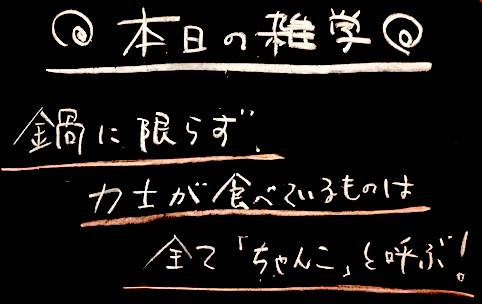 本日の雑学
鍋に限らず、
力士が食べているものは
全て「ちゃんこ」と呼ぶ!